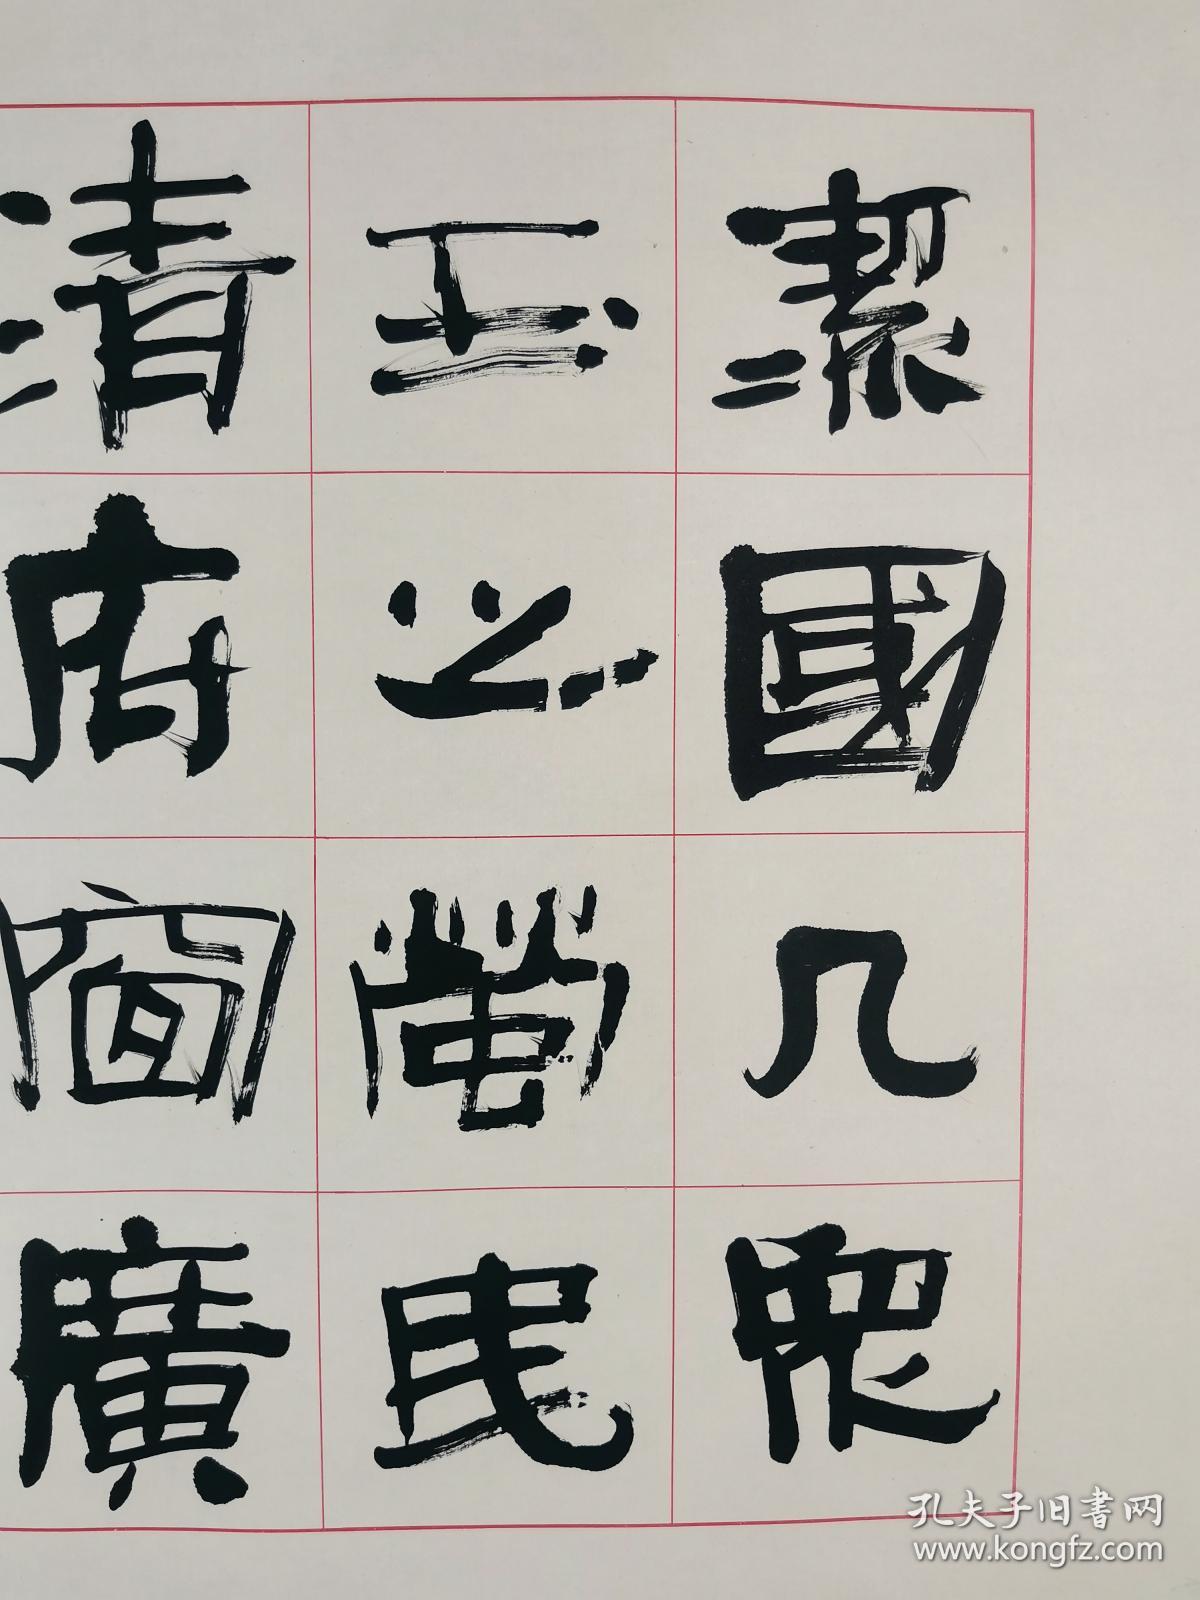 潔國几眾
玉之營民
清府窗廣
孔夫子旧书网
www.kongfz.com